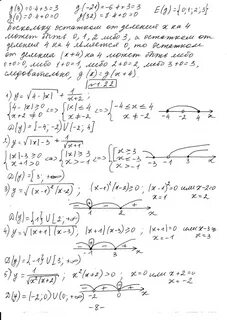 g(3)=0+3=3 g(-21)=-6+3=3 E(g)={0,1,2,3}
g(0)=0+0=0 g(32)=1+0=0
Поскольку остатком от деления x на 4
может быть 0, 1, 2 либо 3, а остатком от
деления 4 на 4 является 0, то остатком
от деления (x+4) на 4 может быть либо
0+0=0, либо 1+0=1, либо 2+0=2, либо 3+0=3,
следовательно, g(x)=g(x+4)
№122
1) y=√(4-|x|) + 1/(x+2)
{4-|x|≥0 x+2≠0 <=> {|x|≤4 x≠-2 <=> {-4≤x≤4 x≠-2
D(y)=[-4;-2)∪(-2;4]
2) y=√(|x|-3) + 1/√(x+1)
{|x|-3≥0 x+1>0 <=> {|x|≥3 x>-1
D(y)=[3;+∞)
3) y=√((x-1)²(x-2)) ; (x-1)²(x-2)≥0; (x-1)²=0 или x-2=0
x=1 x=2
D(y)={1}∪[2;+∞)
4) y=√(|x+1|(x-3)) ; |x+1|(x-3)≥0 |x+1|=0 или x-3=0
x=-1 x=3
D(y)={-1}∪[3;+∞)
5) y=1/√(x²(x+2)) ; x²(x+2)>0; x=0 или x+2=0
x=-2
D(y)=(-2;0)∪(0;+∞)
-8-